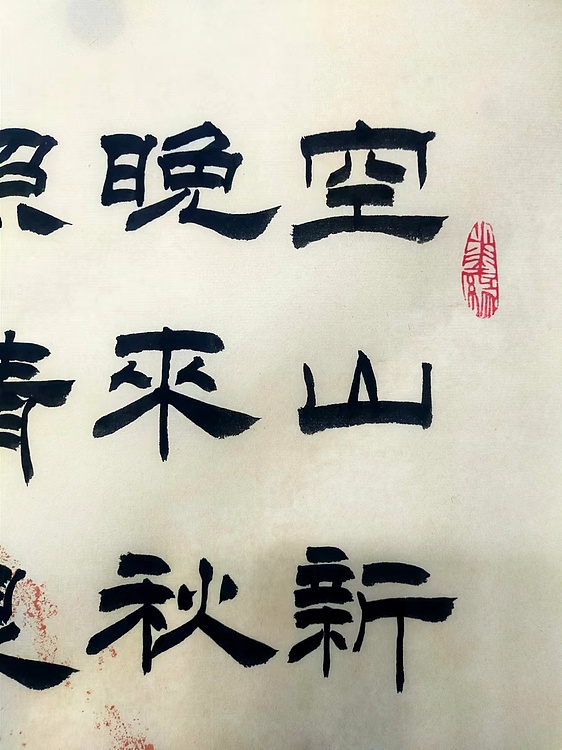 空山新
晚來秋